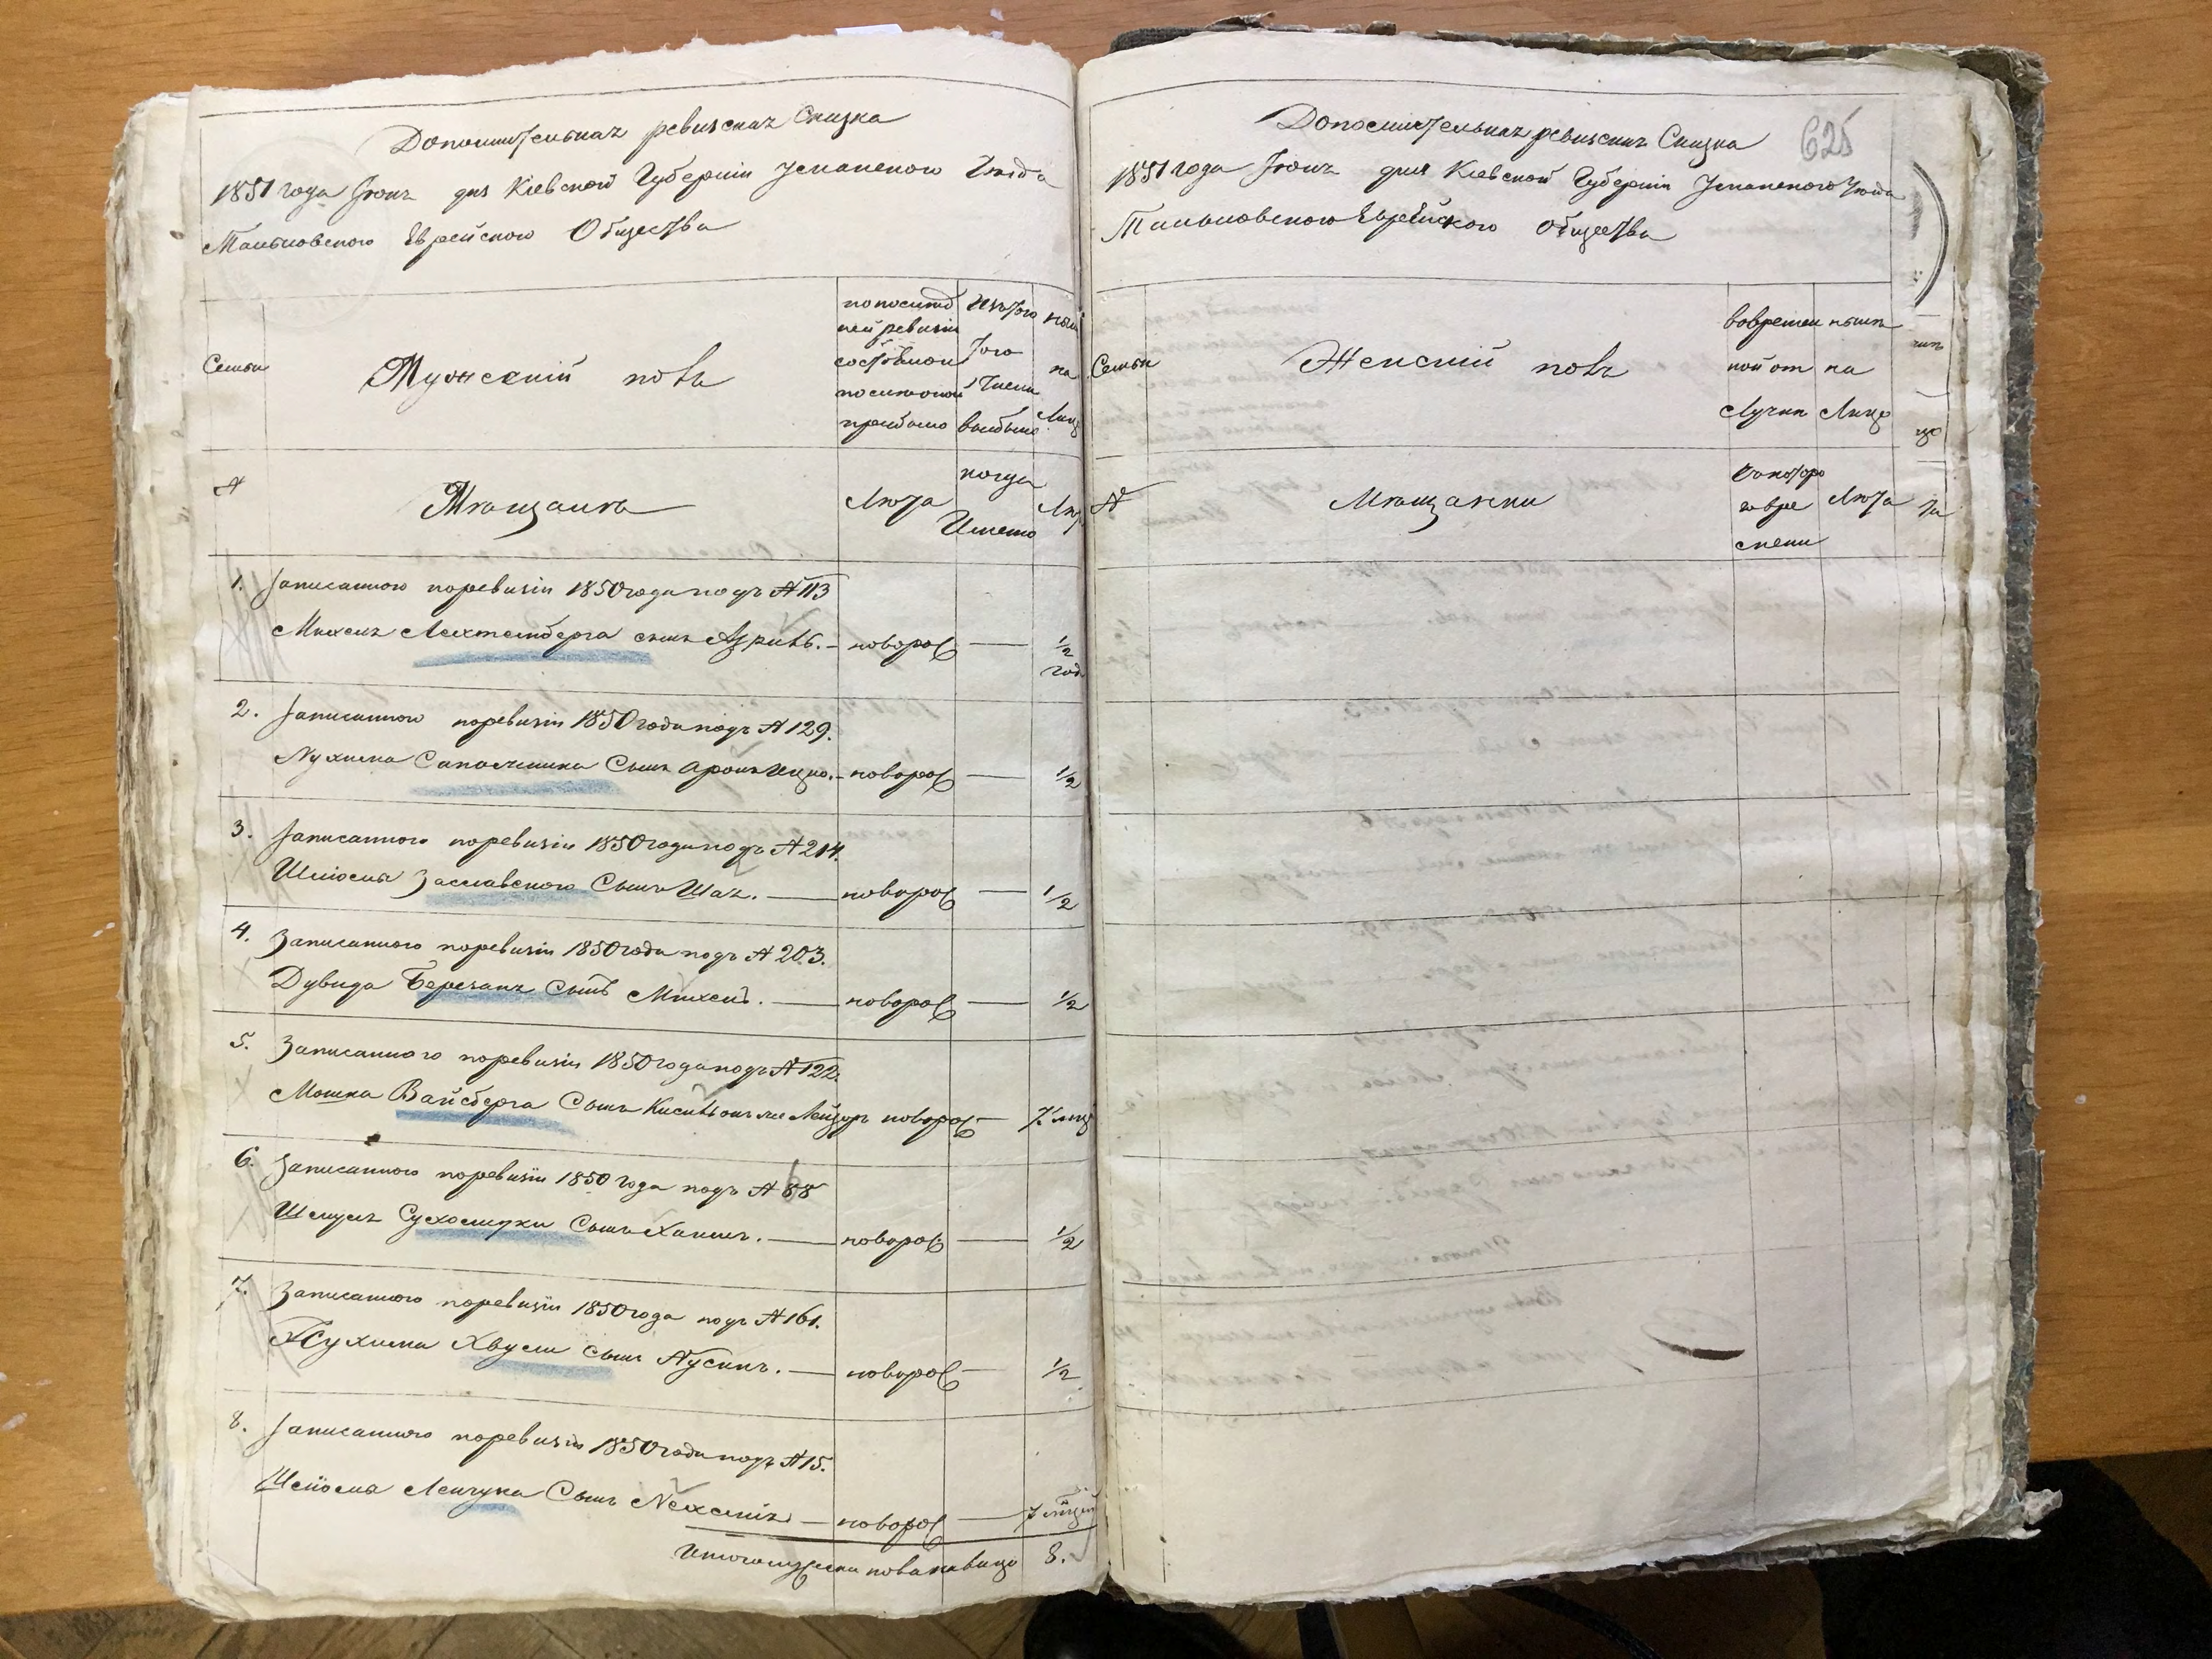 Дополнительная ревизская Сказка
1851 года Июня дня Киевской Губернии Уманского Уезда
Тальновского Еврейского Общества
Семьи
Мужеский полъ
по послед
ней ревизіи
состояло и
после оной
прибыло
Изъ того
числа
выбыло
ныне
на
Лицо
№
Мещане
Лета
когда
Именно
Лета
1. Записанного по ревизіи 1850 года подъ № 113
Михеля Лехтенберга сынъ Азриль. — новорож — 1/2
год
2. Записанного по ревизіи 1850 года подъ № 129.
Нухима Сапожника Сынъ Аронъ Ицко. — новорож — 1/2
3. Записанного по ревизіи 1850 года подъ № 214.
Шлиомы Заславского Сынъ Шая. — новорож — 1/2
4. Записанного по ревизіи 1850 года подъ № 203.
Дувида Березанъ Сынъ Михель. — новорож — 1/2
5. Записанного по ревизіи 1850 года подъ № 122.
Мошка Вайсберга Сынъ Кисиль онъ же Лейзоръ новорож — 7 мц
6. Записанного по ревизіи 1850 года подъ № 88
Шмуля Сухолитки Сынъ Хаимъ. — новорож — 1/2
7. Записанного по ревизіи 1850 года подъ № 161.
Нухима Хвули Сынъ Нусинъ. — новорож — 1/2
8. Записанного по ревизіи 1850 года подъ № 15.
Шлиомы Ленчука Сынъ Нехемія — новорож — 7
Итого мужеска пола на лицо 8.
Дополнительная ревизская Сказка
625
1851 года Июня дня Киевской Губернии Уманского Уезда
Тальновского Еврейского Общества
Семьи
Женский полъ
во времен
ной от
Лучки
ныне
на
Лицо
№
Мещанки
Съ которо
го вре
мени
Лета